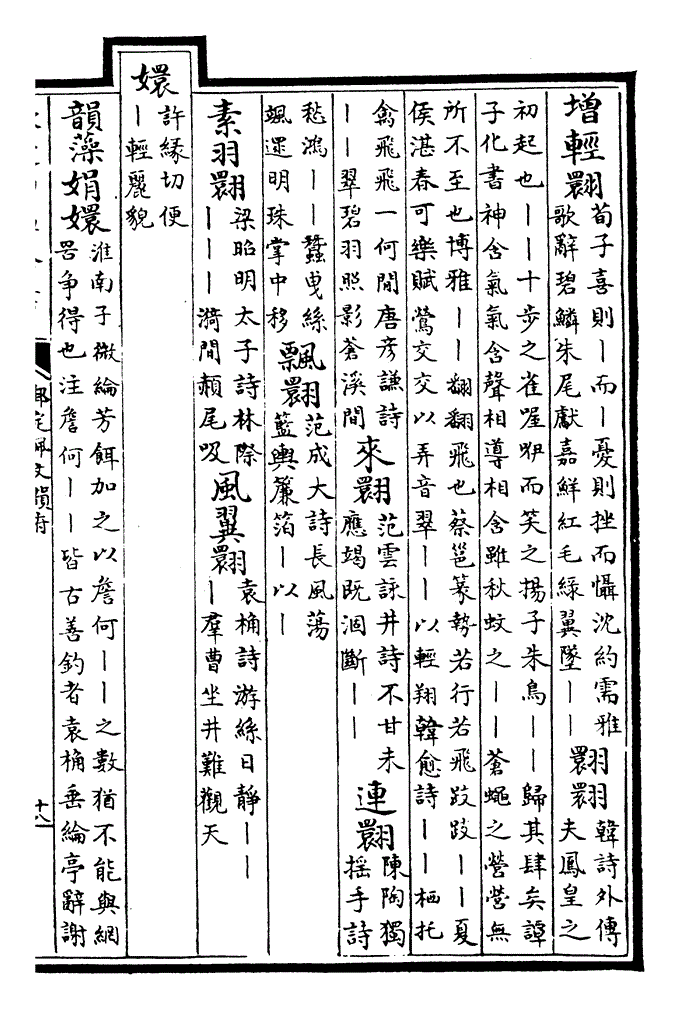 增輕翾
荀子喜則｜而｜憂則挫而懾沈約需雅
歌辭碧鱗朱尾獻嘉鮮紅毛綠翼墜｜｜
翾翾
韓詩外傳
夫鳳皇之
初起也｜｜十步之雀喔咿而笑之揚子朱鳥｜｜歸其肆矣譚
子化書神含氣氣含聲相導相含雖秋蚊之｜｜蒼蠅之營營無
所不至也博雅｜｜翻翻飛也蔡邕篆勢若行若飛跂跂｜｜夏
侯湛春可樂賦鶯交交以弄音翠｜｜以輕翔韓愈詩｜｜栖托
禽飛飛一何閒唐彦謙詩
｜｜翠碧羽照影蒼溪間
來翾
范雲詠井詩不甘未
應竭既涸斷｜｜
連翾
陳陶獨
搖手詩
愁鴻｜｜蠶曳絲
颯遝明珠掌中移
飄翾
范成大詩長風蕩
籃輿簾箔｜以｜
素羽翾
梁昭明太子詩林際
｜｜｜漪間赬尾吸
風翼翾
袁桷詩游絲日靜｜｜
｜羣曹坐井難觀天
嬛
許緣切便
｜輕麗貌
韻藻娟嬛
淮南子微綸芳餌加之以詹何｜｜之數猶不能與網
罟争得也注詹何｜｜皆古善釣者袁桷垂綸亭辭謝
十八